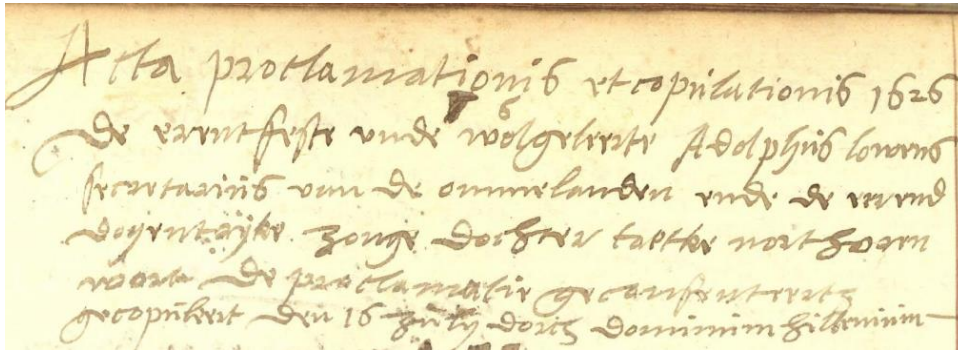 Acta proclamationis et copulationis 1626
De erentfeste unde wolgeleerte Adolphus lowens
secretarius van de ommelanden ende de eerend
doyentrijke jonge dochter taetke northoren
wort de proclamatie geconsenteert
gecopuleert den 16 July dorch dominum hillenium